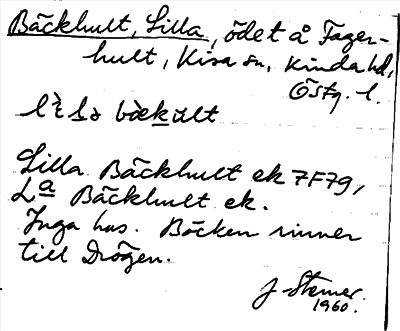 Bäckhult, Lilla, ödet å Fager-
hult, Kisa sn, Kinda hd,
Östg. l.
lìla bækult
Lilla Bäckhult ek 7F79,
La Bäckhult ek.
Inga hus. Bäcken rinner
till Drögen.
J Stemer.
1960.